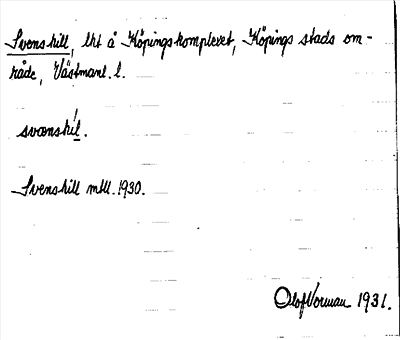 Svenskill, lht å Köpingskomplexet, Köpings stads om-
råde, Västmanl. l.
svænskìl.
Svenskill mtll. 1930.
Olof Vorman 1931.